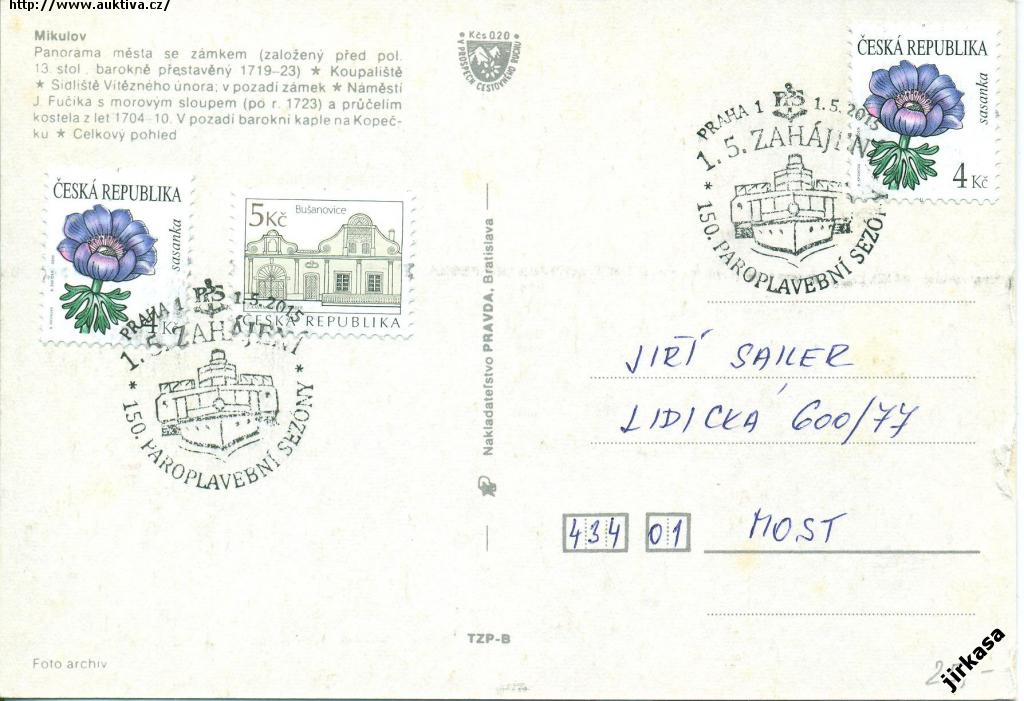 http://www.auktiva.cz/
Mikulov
Panorama města se zámkem (založený před pol.
13. stol., barokně přestavěný 1719–23) ★ Koupaliště
★ Sídliště Vítězného února; v pozadí zámek ★ Náměstí
J. Fučíka s morovým sloupem (po r. 1723) a průčelím
kostela z let 1704–10. V pozadí barokní kaple na Kopeč-
ku ★ Celkový pohled
Kčs 0,20
V PROSPĚCH CESTOVNÉHO RUCHU
ČESKÁ REPUBLIKA
sasanka
4 Kč
PRAHA 1 PPS 1.5.2015
1.5. ZAHÁJENÍ
* 150. PAROPLAVEBNÍ SEZÓNY
ČESKÁ REPUBLIKA
sasanka
4 Kč
5Kč
Bušanovice
ČESKÁ REPUBLIKA
PRAHA 1 PPS 1.5.2015
1.5. ZAHÁJENÍ
* 150. PAROPLAVEBNÍ SEZÓNY *
Nakladateľstvo PRAVDA, Bratislava
JIŘÍ SAILER
LIDICKÁ 600/77
434 01 MOST
TZP-B
Foto archív
jirkasa